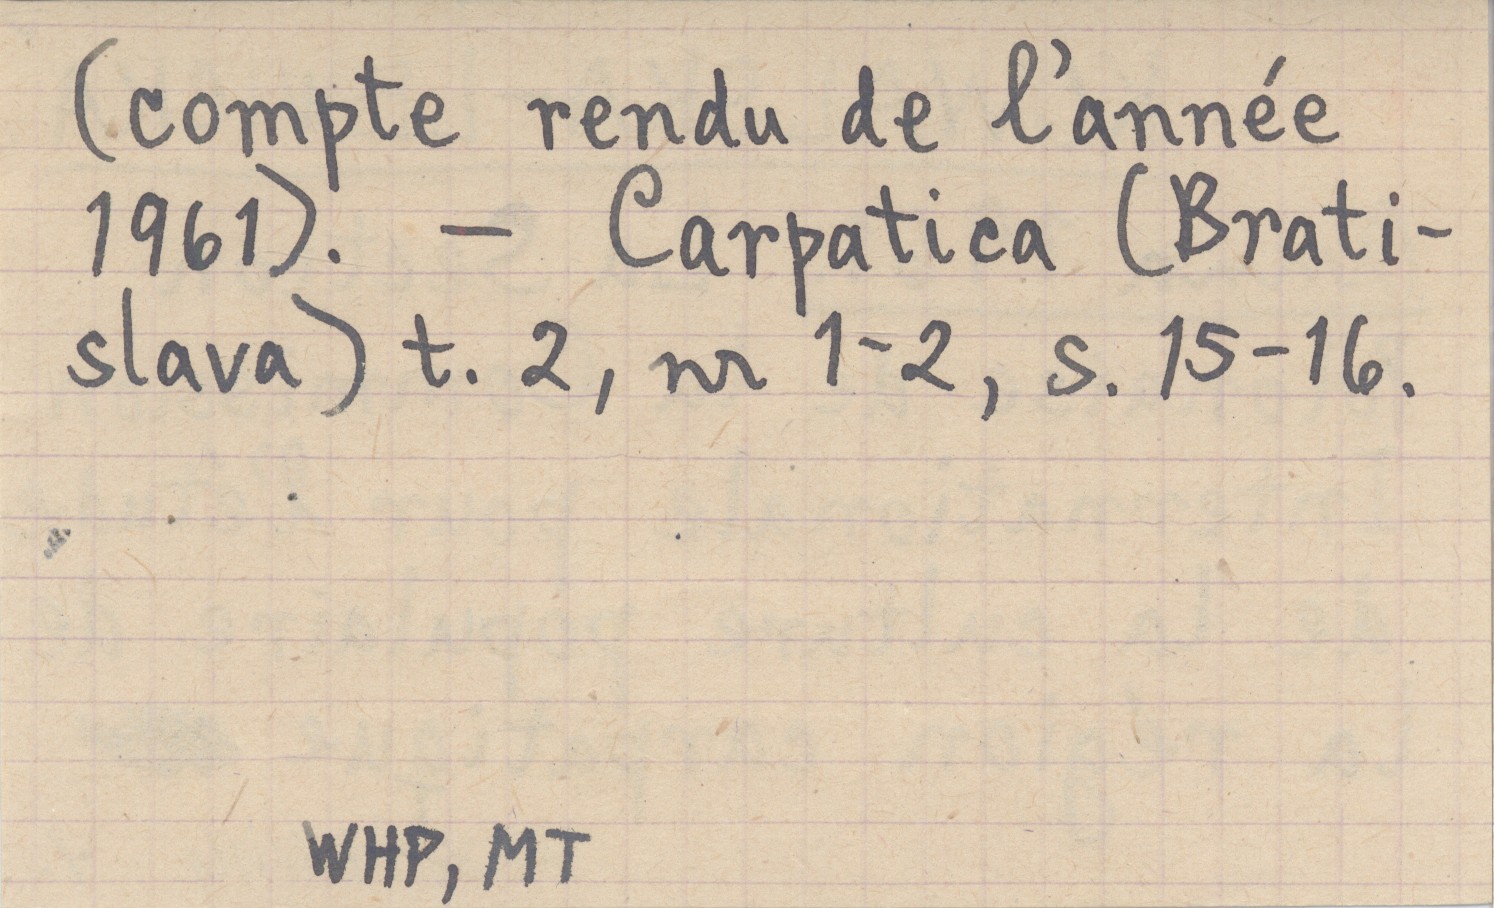 (compte rendu de l'année
1961). - Carpatica (Brati-
slava) t. 2, nr 1-2, s. 15-16.
WHP, MT